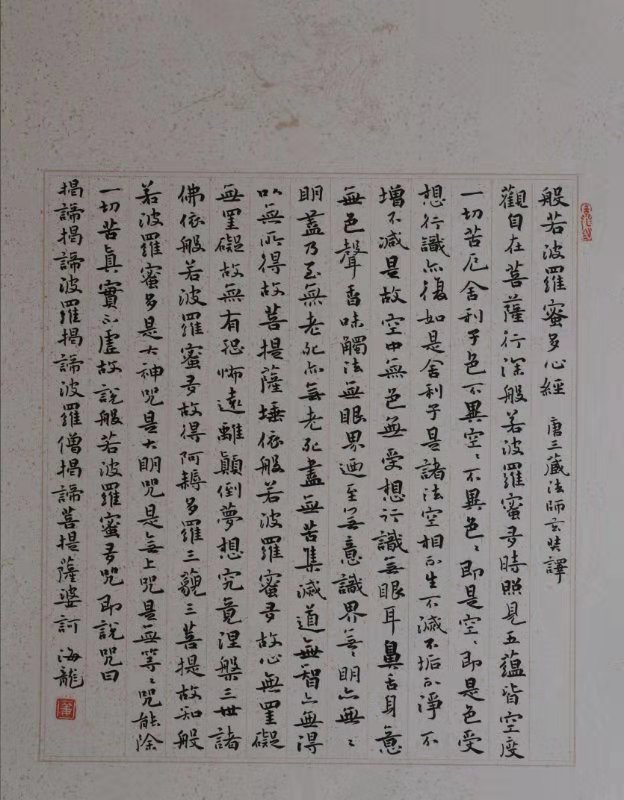 般若波羅蜜多心經 唐三藏法師玄奘譯
觀自在菩薩行深般若波羅蜜多時照見五蘊皆空度
一切苦厄舍利子色不異空〻不異色〻即是空〻即是色受
想行識亦復如是舍利子是諸法空相不生不滅不垢不淨不
增不減是故空中無色無受想行識無眼耳鼻舌身意
無色聲香味觸法無眼界迺至無意識界無〻明亦無〻
明盡乃至無老死亦無老死盡無苦集滅道無智亦無得
以無所得故菩提薩埵依般若波羅蜜多故心無罣礙
無罣礙故無有恐怖遠離顛倒夢想究竟涅槃三世諸
佛依般若波羅蜜多故得阿耨多羅三藐三菩提故知般
若波羅蜜多是大神咒是大明咒是無上咒是無等〻咒能除
一切苦真實不虛故說般若波羅蜜多咒即說咒曰
揭諦揭諦波羅揭諦波羅僧揭諦菩提薩婆訶 海龍